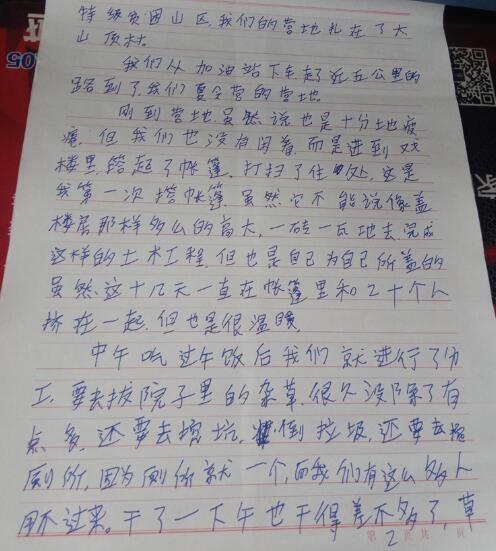 特级贫困山区，我们的营地扎在了大
山顶村。
我们从加油站下车走了近五公里的
路到了我们夏令营的营地。
刚到营地，虽然说也是十分地疲
惫，但我们也没有闲着，而是进到戏
楼里搭起了帐篷，打扫了住处，这是
我第一次搭帐篷，虽然它不能说像盖
楼层那样多么的高大，一砖一瓦地去完成
这样的土木工程，但也是自己为自己所盖的
虽然这十几天一直在帐篷里和二十个人
挤在一起，但也是很温暖。
中午吃过午饭后我们就进行了分
工，要去拔院子里的杂草，很久没除了有
点多，还要去挖坑，倒垃圾，还要去挖
厕所，因为厕所就一个，而我们有这么多人
用不过来。干了一下午也干得差不多了，草
第 2 页 共 页
05